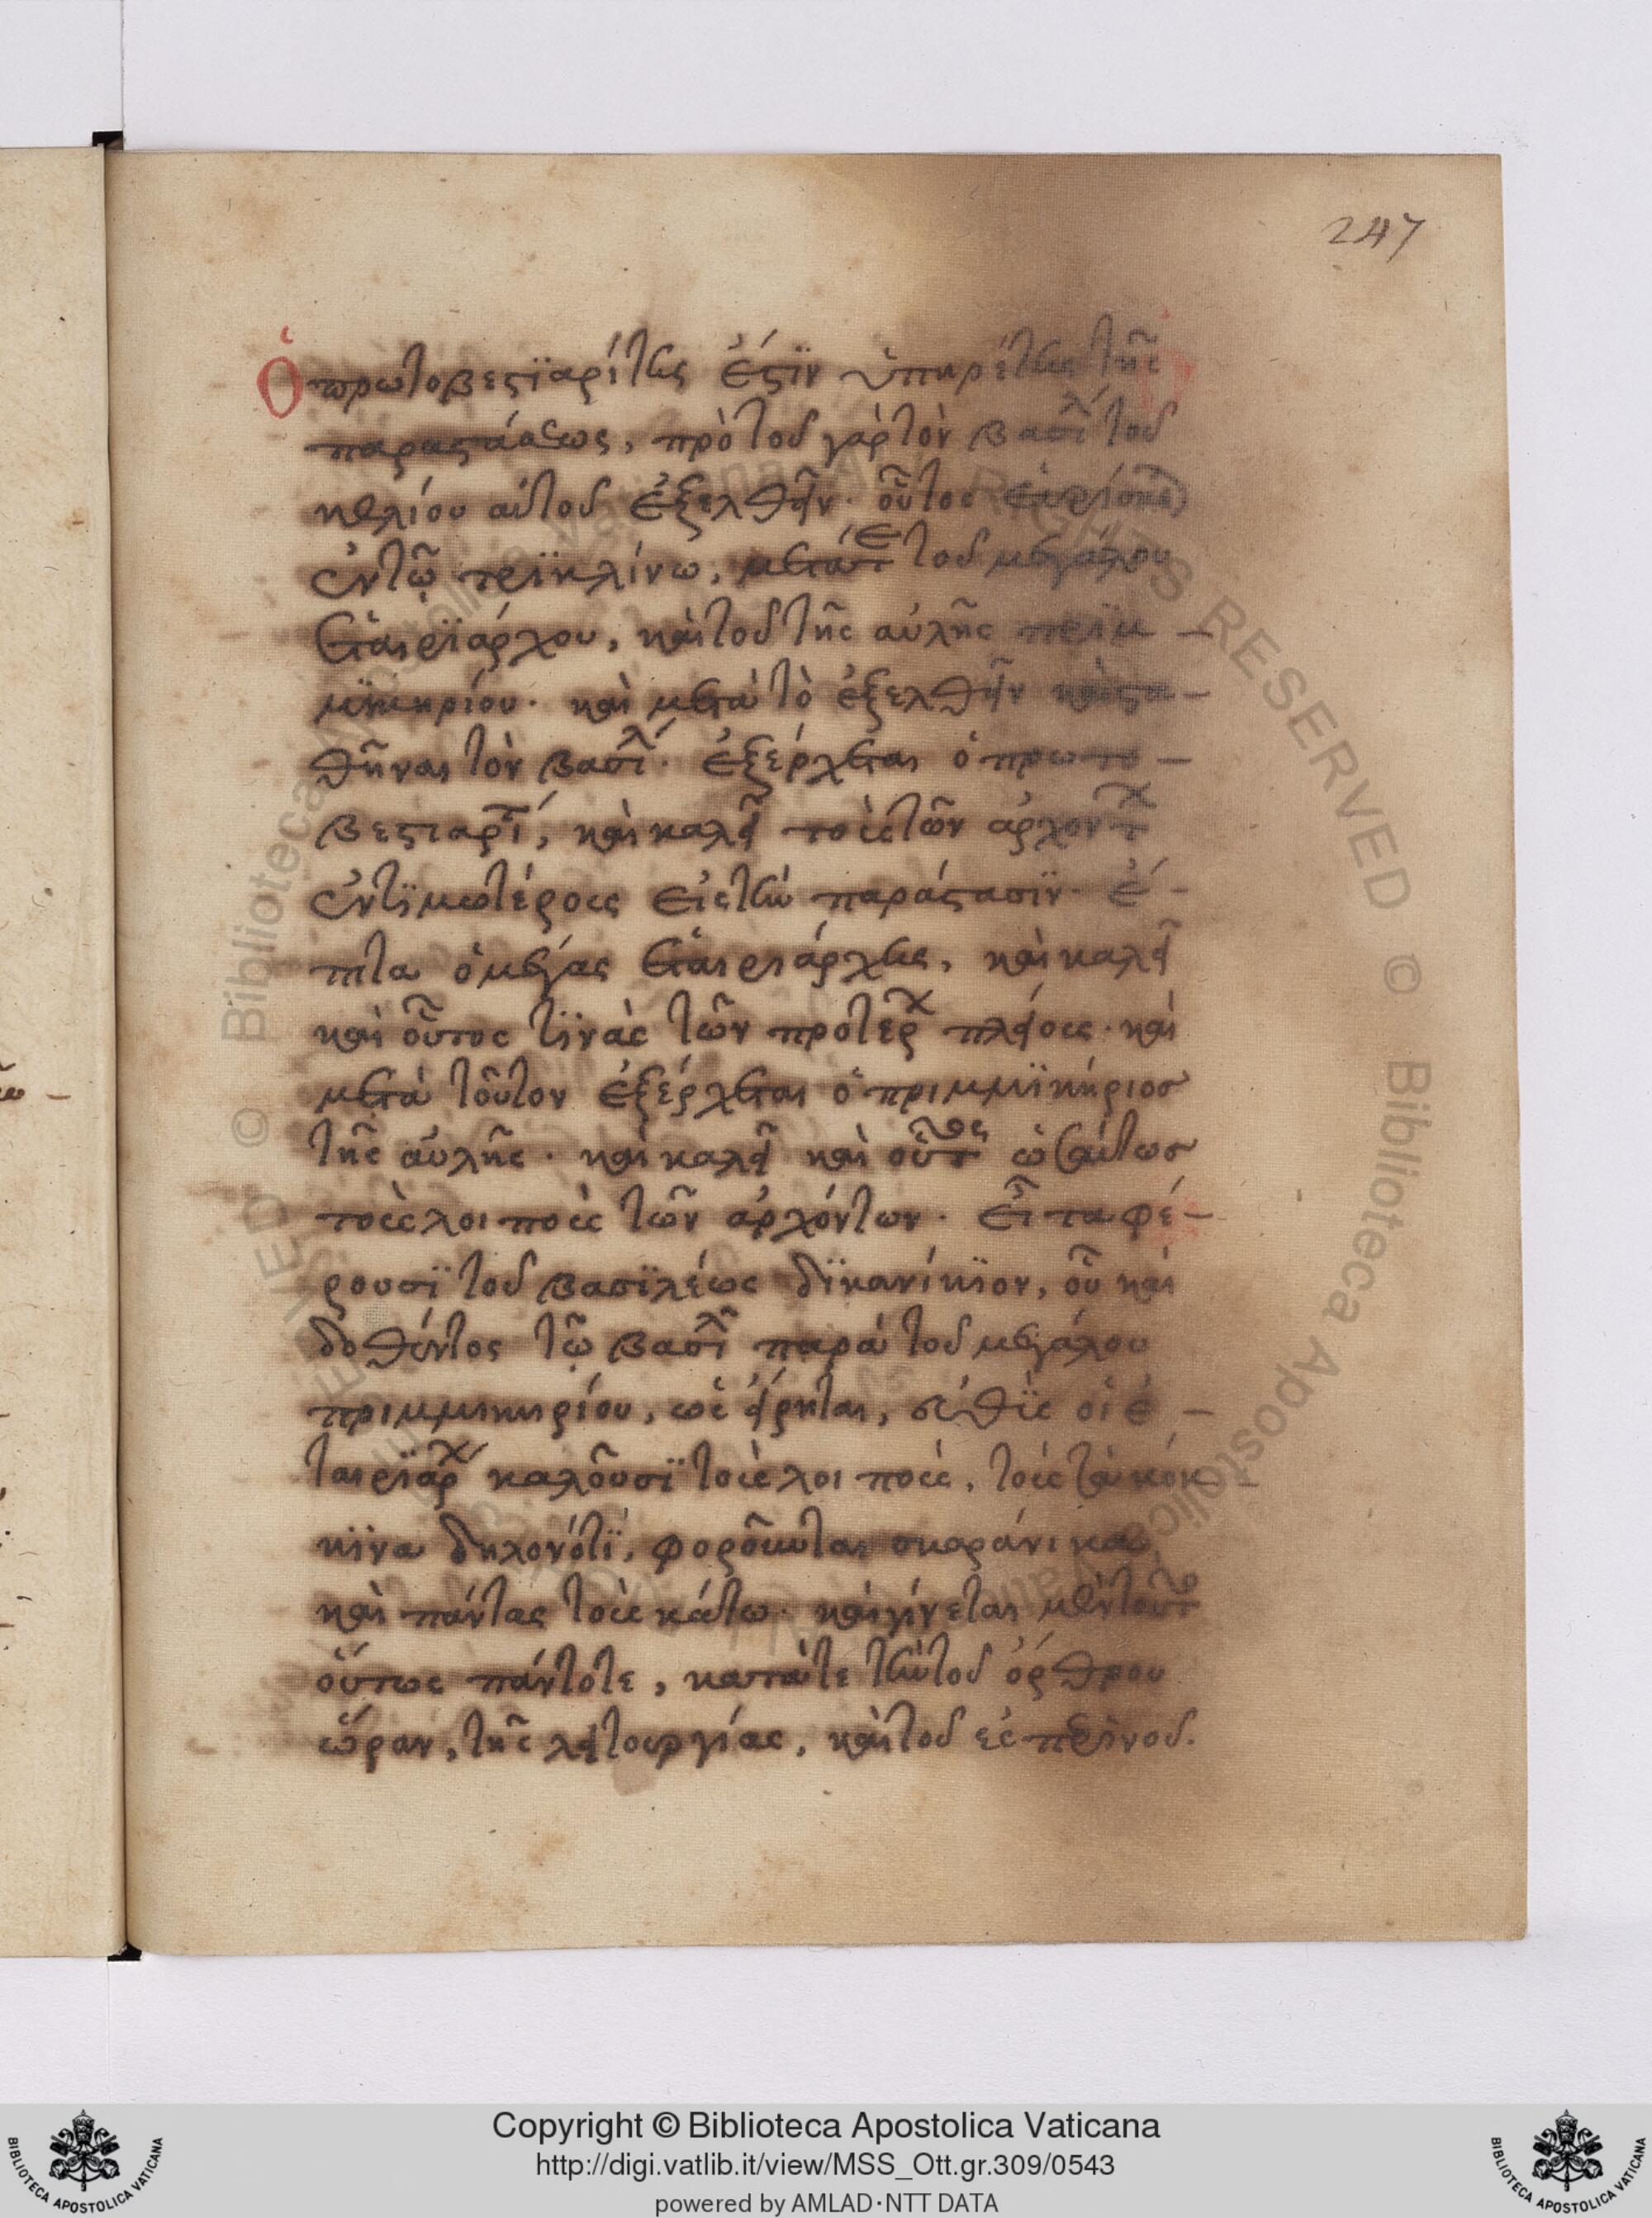 247
Ὁ πρωτοβεστϊαρίτης ἐστϊν ὑπηρέτης τῆς
παραστάσεως, πρὸ τοῦ γὰρ τὸν βασιλ τοῦ
κελλίου αὐτοῦ ἐξελθεῖν· οὗτος εὑρίσκε
ἐν τῷ τρϊκλίνω, μετά τε τοῦ μεγάλου
ἑταιρϊάρχου, καὶ τοῦ τῆς αὐλῆς πριμ-
μϊκηρίου· καὶ μετὰ τὸ ἐξελθεῖν καὶ στα-
θῆναι τὸν βασιλ· ἐξέρχεται ὁ πρωτο-
βεστιαρί, καὶ καλεῖ τοὺς τῶν ἀρχοντ
ἐντϊμοτέρους εἰς τὴν παράστασϊν· ἔ-
πειτα ὁ μέγας ἑταιριάρχης, καὶ καλεῖ
καὶ οὗτος τϊνὰς τῶν προτερ πλείους· καὶ
μετὰ τοῦτον ἐξέρχεται ὁ πριμμϊκήριος
τῆς αὐλῆς· καὶ καλεῖ καὶ οὗτος ὡσαύτως
τοὺς λοιποὺς τῶν ἀρχόντων· εἶτα φέ-
ρουσϊ τοῦ βασϊλέως δϊκανίκϊον, οὗ καὶ
δοθέντος τῷ βασιλ παρὰ τοῦ μεγάλου
πριμμικηρίου, ὡς εἴρηται, εὐθὺς οἱ ἑ-
ταιρϊαρχ καλοῦσϊ τοὺς λοιποὺς, τοὺς τὰ κόκ-
κϊνα δηλονότϊ, φοροῦντας σκαράνικα,
καὶ πάντας τοὺς κάτω· καὶ γίνεται μὲν τοῦτο
οὕτως πάντοτε, κατά τε τὴν τοῦ ὄρθρου
ὥραν, τῆς λειτουργίας, καὶ τοῦ ἑσπερϊνοῦ.
Copyright © Biblioteca Apostolica Vaticana
http://digi.vatlib.it/view/MSS_Ott.gr.309/0543
powered by AMLAD·NTT DATA